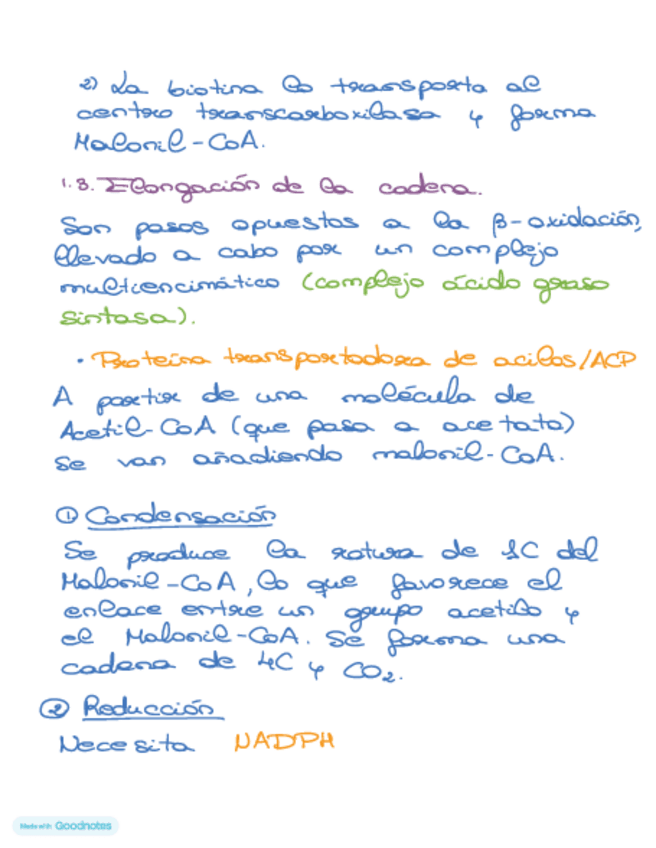 2) La biotina lo transporta al
centro transcarboxilasa y forma
Malonil-CoA.
1.3. Elongación de la cadena.
Son pasos opuestos a la β-oxidación,
llevado a cabo por un complejo
multiencimático (complejo ácido graso
sintasa).
• Proteína transportadora de acilos/ACP
A partir de una molécula de
Acetil-CoA (que pasa a acetato)
se van añadiendo malonil-CoA.
① Condensación
Se produce la rotura de 1C del
Malonil-CoA, lo que favorece el
enlace entre un grupo acetilo y
el Malonil-CoA. Se forma una
cadena de 4C y CO₂.
② Reducción
Necesita NADPH
Made with Goodnotes